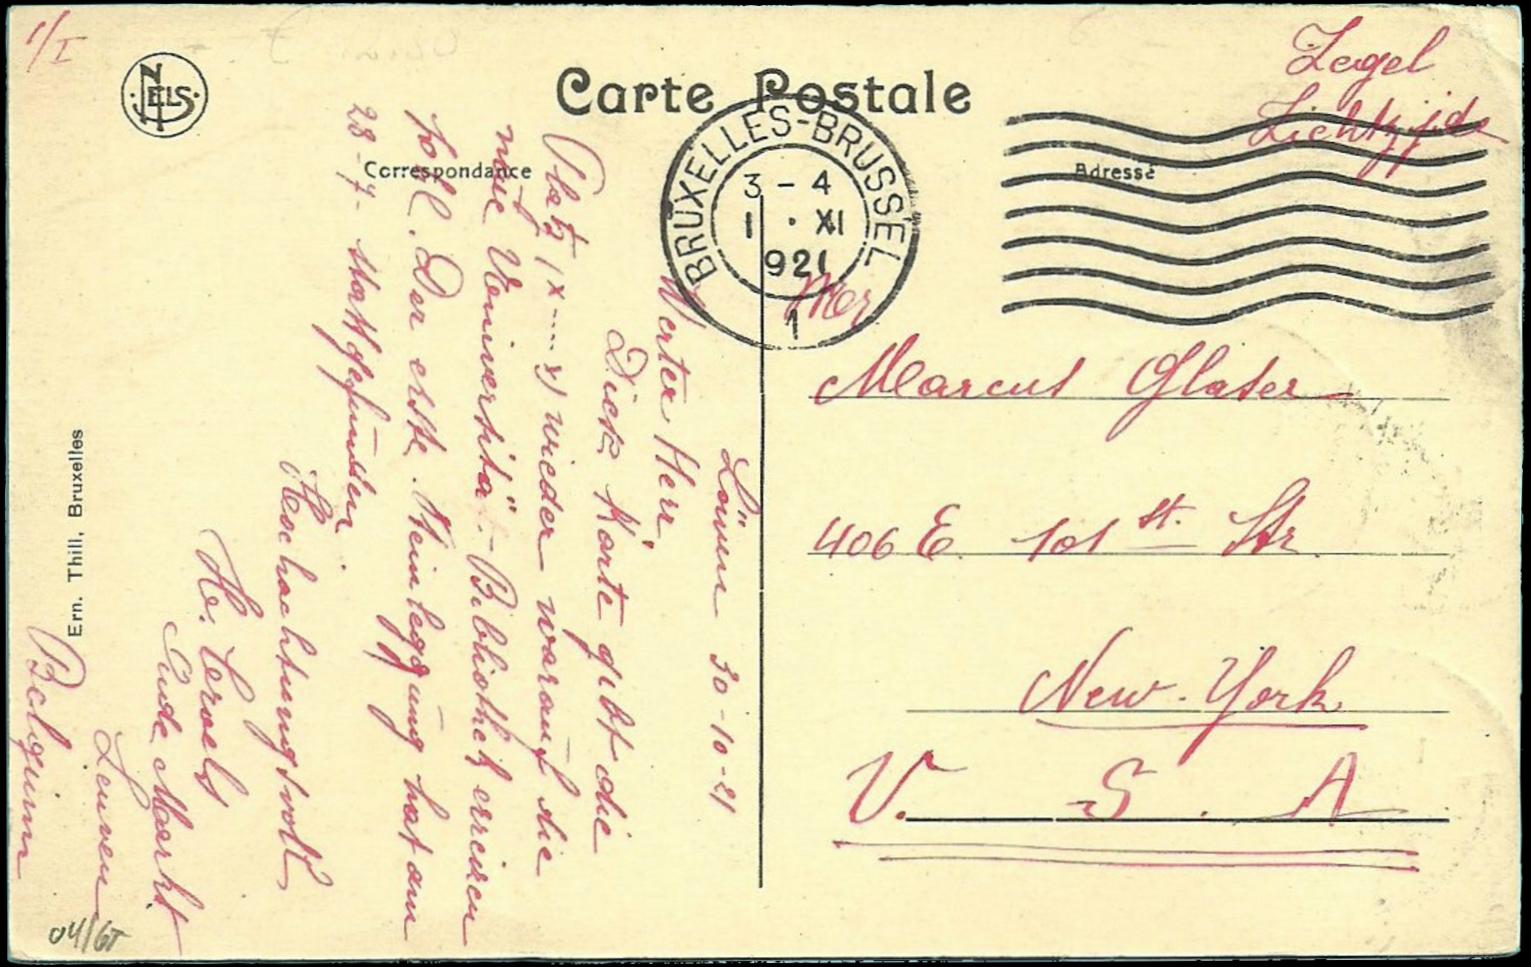 1/I
NELS
Carte Postale
Correspondance
Adresse
Zegel
Lichtzijde
BRUXELLES-BRUSSEL
3 - 4
1 · XI
1921
1
Löwen 30-10-21
Werter Herr,
Diese Karte gibt die
Platz (x.....x) wieder worauf die
neue Universität-Bibliothek erricen
soll. Der erste Steinlegung hat am
28-7- stattgefunden.
Hochachtungsvoll
Oude Markt
Leuven
Belgium
Mer
Marcus Glaser
406 E. 101 st. Str.
New-York
U. S. A
Ern. Thill, Bruxelles